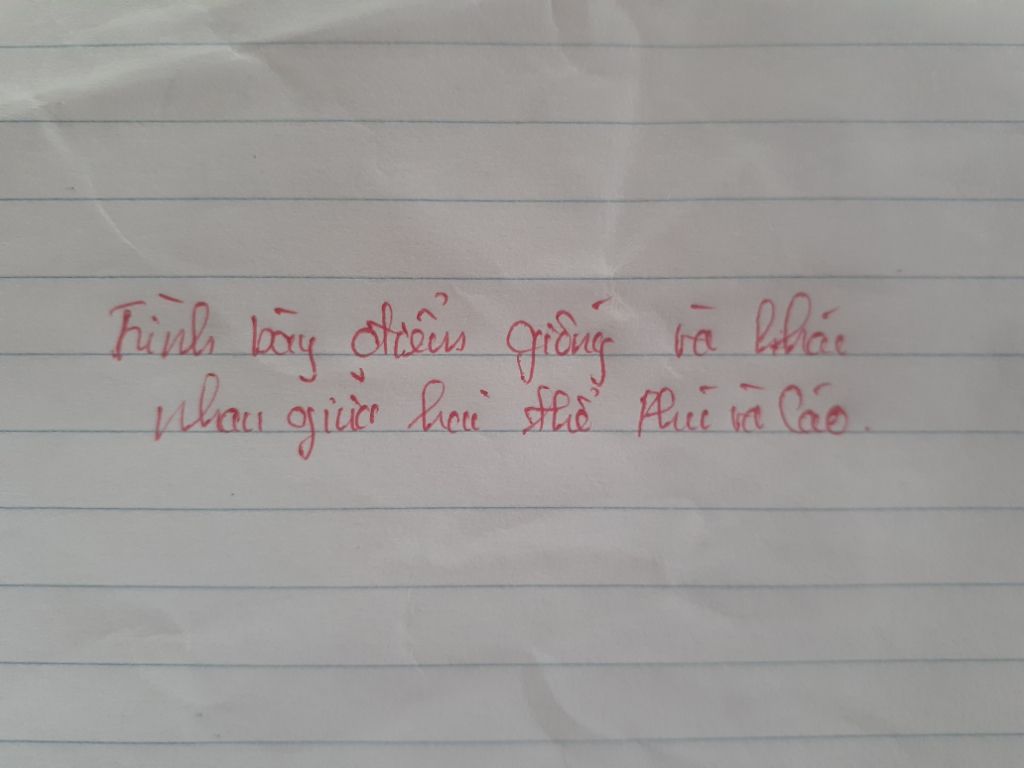 Trình bày điểm giống và khác
nhau giữa hai thể Phú và Cáo.